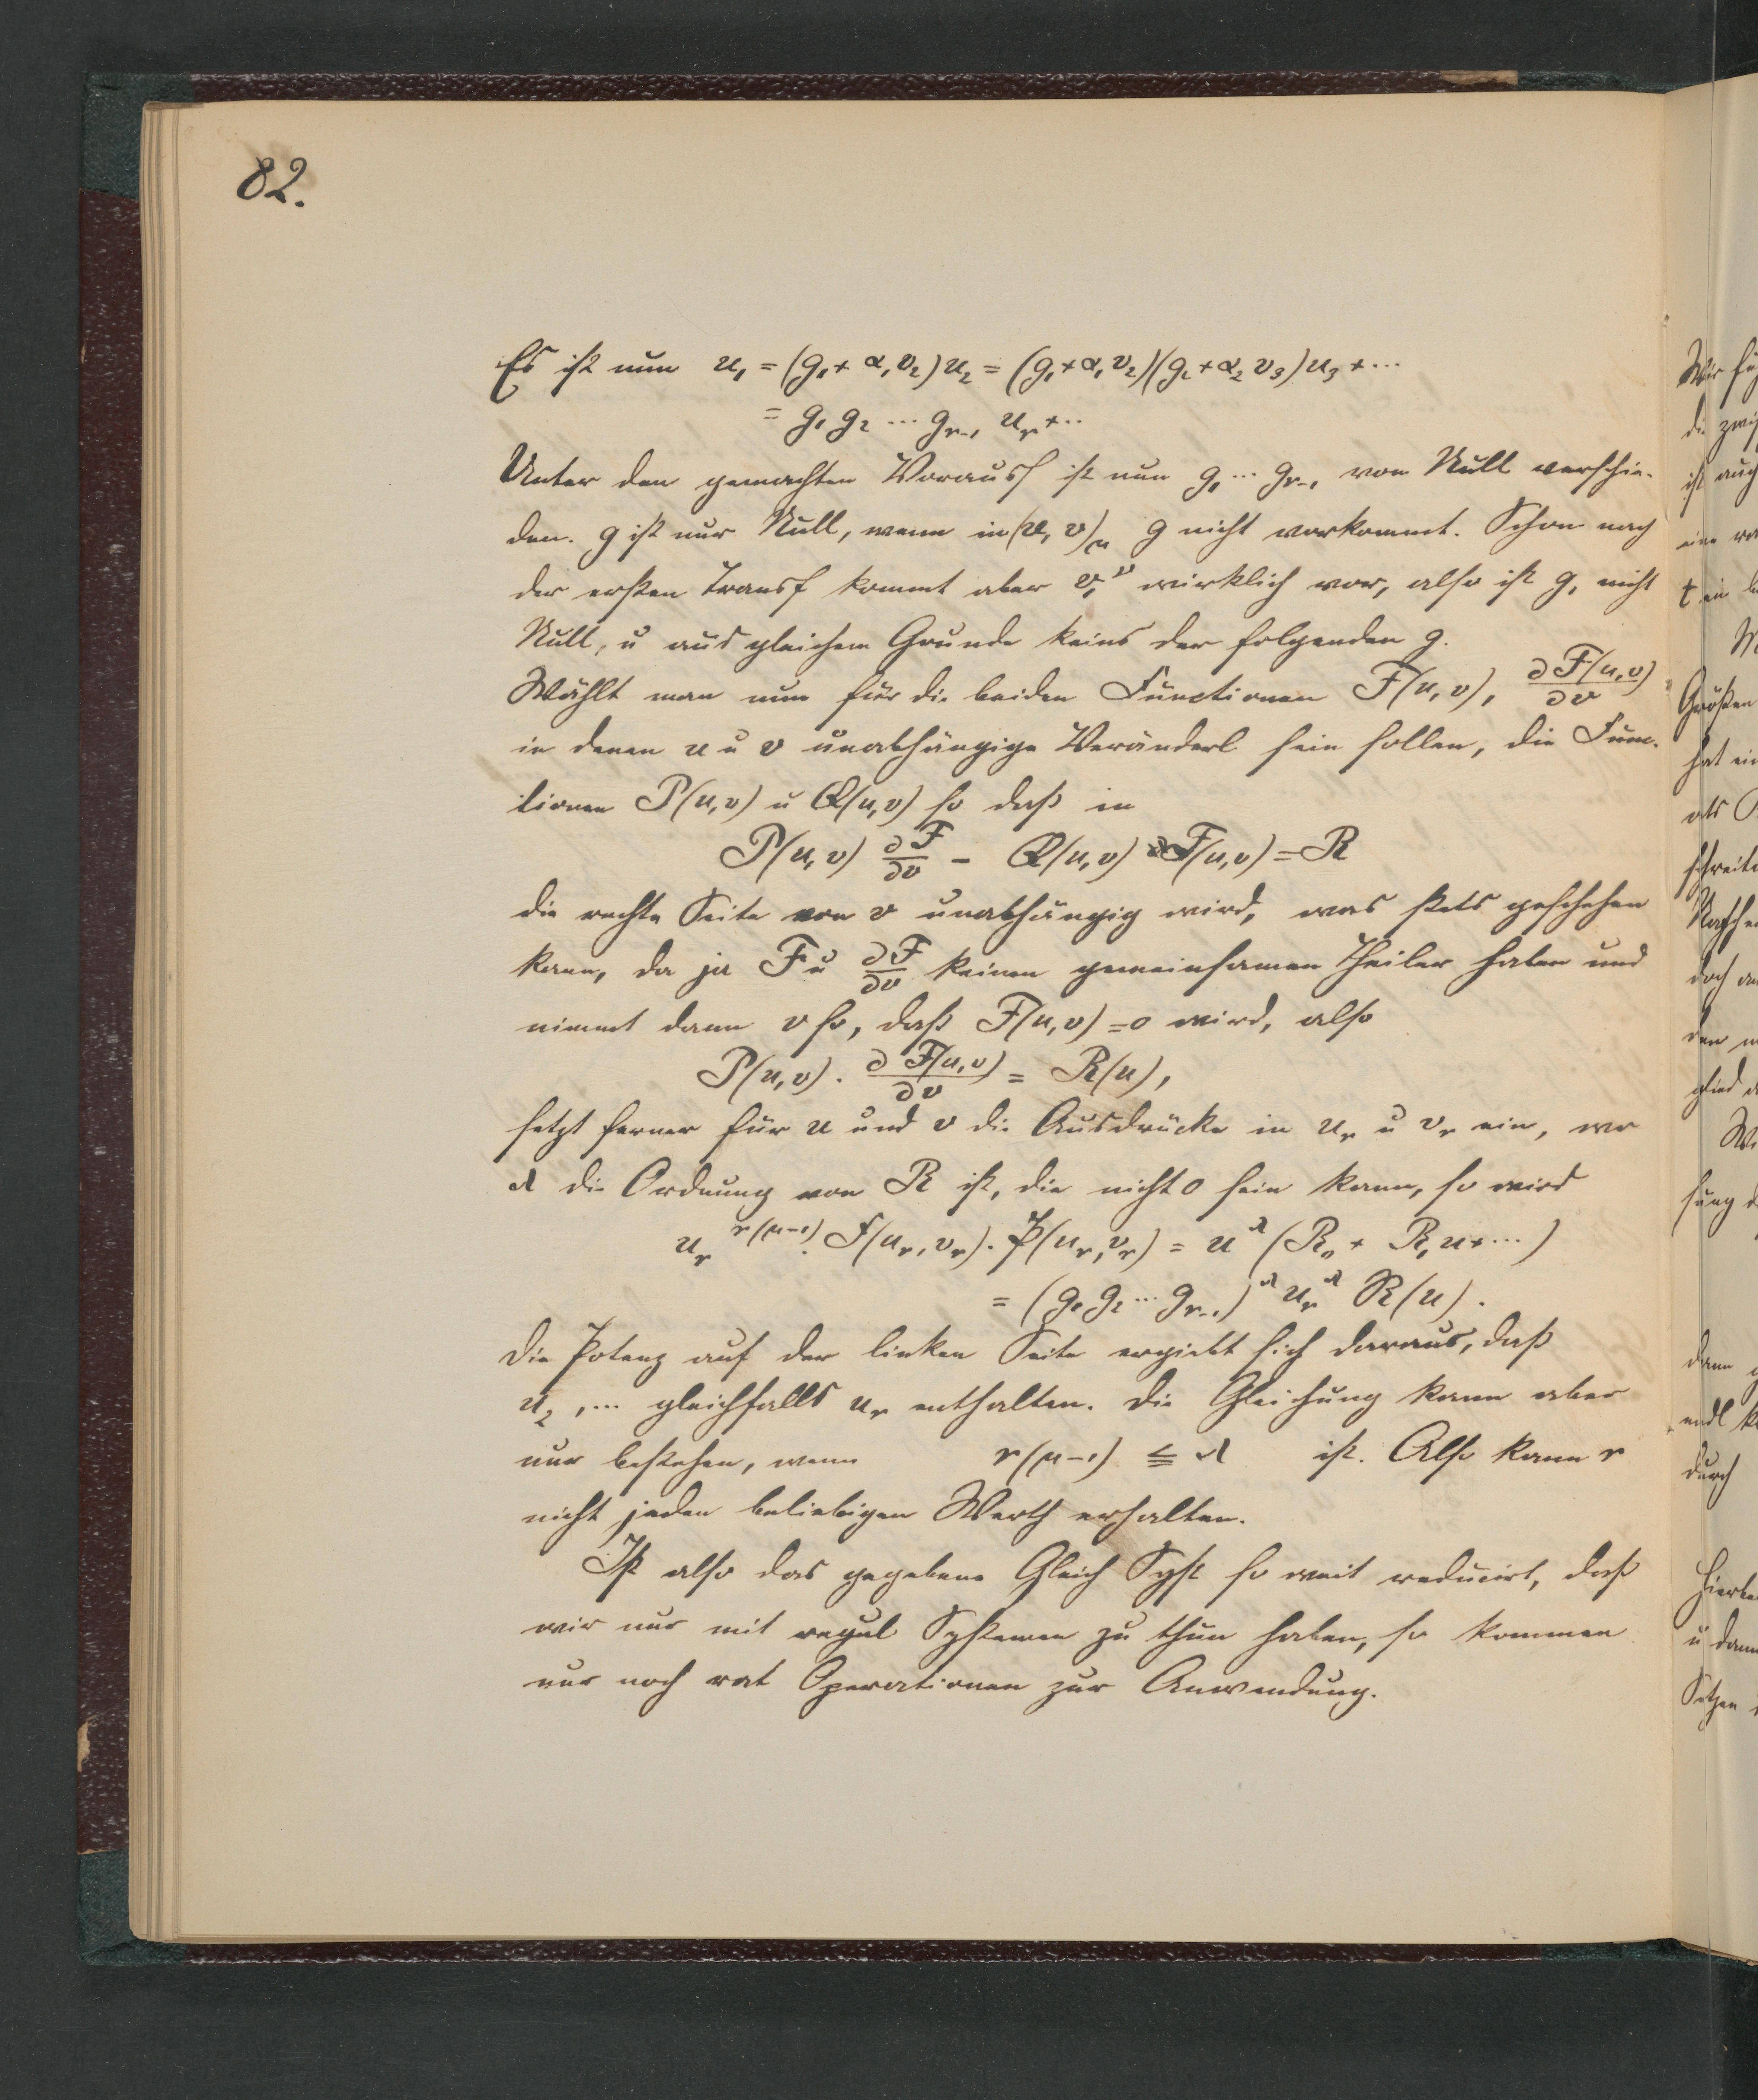 82.
Es ist nun u₁ = (g₁ + α₁v₂)u₂ = (g₁ + α₁v₂)(g₂ + α₂v₃)u₃ + ···
= g₁ g₂ ··· gᵣ₋₁ uᵣ + ··
Unter den gemachten Vorauss ist nun g₁ ··· gᵣ₋₁ von Null verschie-
den. g ist nur Null, wenn in (u, v)_μ g nicht vorkommt. Schon nach
der ersten Transf kommt aber v₁^ν wirklich vor, also ist g₁ nicht
Null, u aus gleichem Grunde keins der folgenden g.
Wählt man nun für die beiden Functionen F(u,v), ∂F(u,v)/∂v,
in denen u u v unabhängige Veränderl sein sollen, die Func-
tionen P(u,v) u Q(u,v) so daß in
P(u,v) ∂F/∂v - Q(u,v) F(u,v) = R
die rechte Seite von v unabhängig wird, was stets geschehen
kann, da ja F u ∂F/∂v keinen gemeinsamen Theiler haben und
nimmt dann v so, daß F(u,v) = 0 wird, also
P(u,v) · ∂F(u,v)/∂v = R(u),
setzt ferner für u und v die Ausdrücke in uᵣ u vᵣ ein, wo
λ die Ordnung von R ist, die nicht 0 sein kann, so wird
uᵣ^{r(μ-1)} · F(uᵣ, vᵣ) · P(uᵣ, vᵣ) = u^λ (R₀ + R₁u + ···)
= (g₁ g₂ ··· gᵣ₋₁)^λ uᵣ^λ R(u).
Die Potenz auf der linken Seite ergiebt sich daraus, daß
u₂, ··· gleichfalls uᵣ enthalten. Die Gleichung kann aber
nur bestehen, wenn r(μ-1) ≦ λ ist. Also kann r
nicht jeden beliebigen Werth erhalten.
Ist also das gegebene Gleich Syst so weit reducirt, daß
wir nur mit regul Systemen zu thun haben, so kommen
nur noch rat Operationen zur Anwendung.